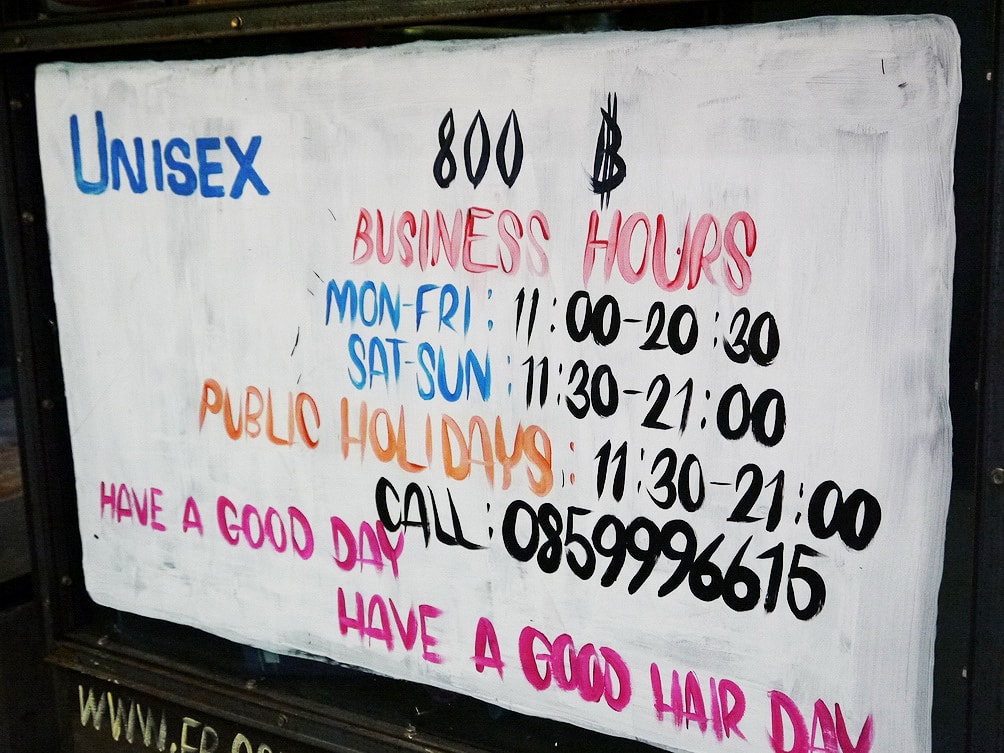 UNISEX 800 ฿
BUSINESS HOURS
MON-FRI: 11:00-20:30
SAT-SUN: 11:30-21:00
PUBLIC HOLIDAYS: 11:30-21:00
CALL: 0859996615
HAVE A GOOD DAY
HAVE A GOOD HAIR DAY